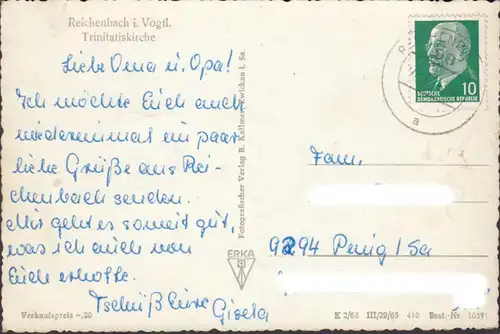 Reichenbach i. Vogtl.
Trinitatiskirche
Liebe Oma u. Opa!
Ich möchte Euch auch
wiedereinmal ein paar
liebe Grüße aus Rei-
chenbach senden.
Mir geht es soweit gut,
was ich auch von
Euch erhoffe.
Tschüß Eure Gisela
Verkaufspreis -,20
Fotografischer Verlag R. Kallmer, Zwickau i. Sa.
ERKA
10
DEUTSCHE
DEMOKRATISCHE REPUBLIK
a
Fam.
9294 Penig/Sa
K 2/65 III/29/65 410 Best.-Nr. 10391